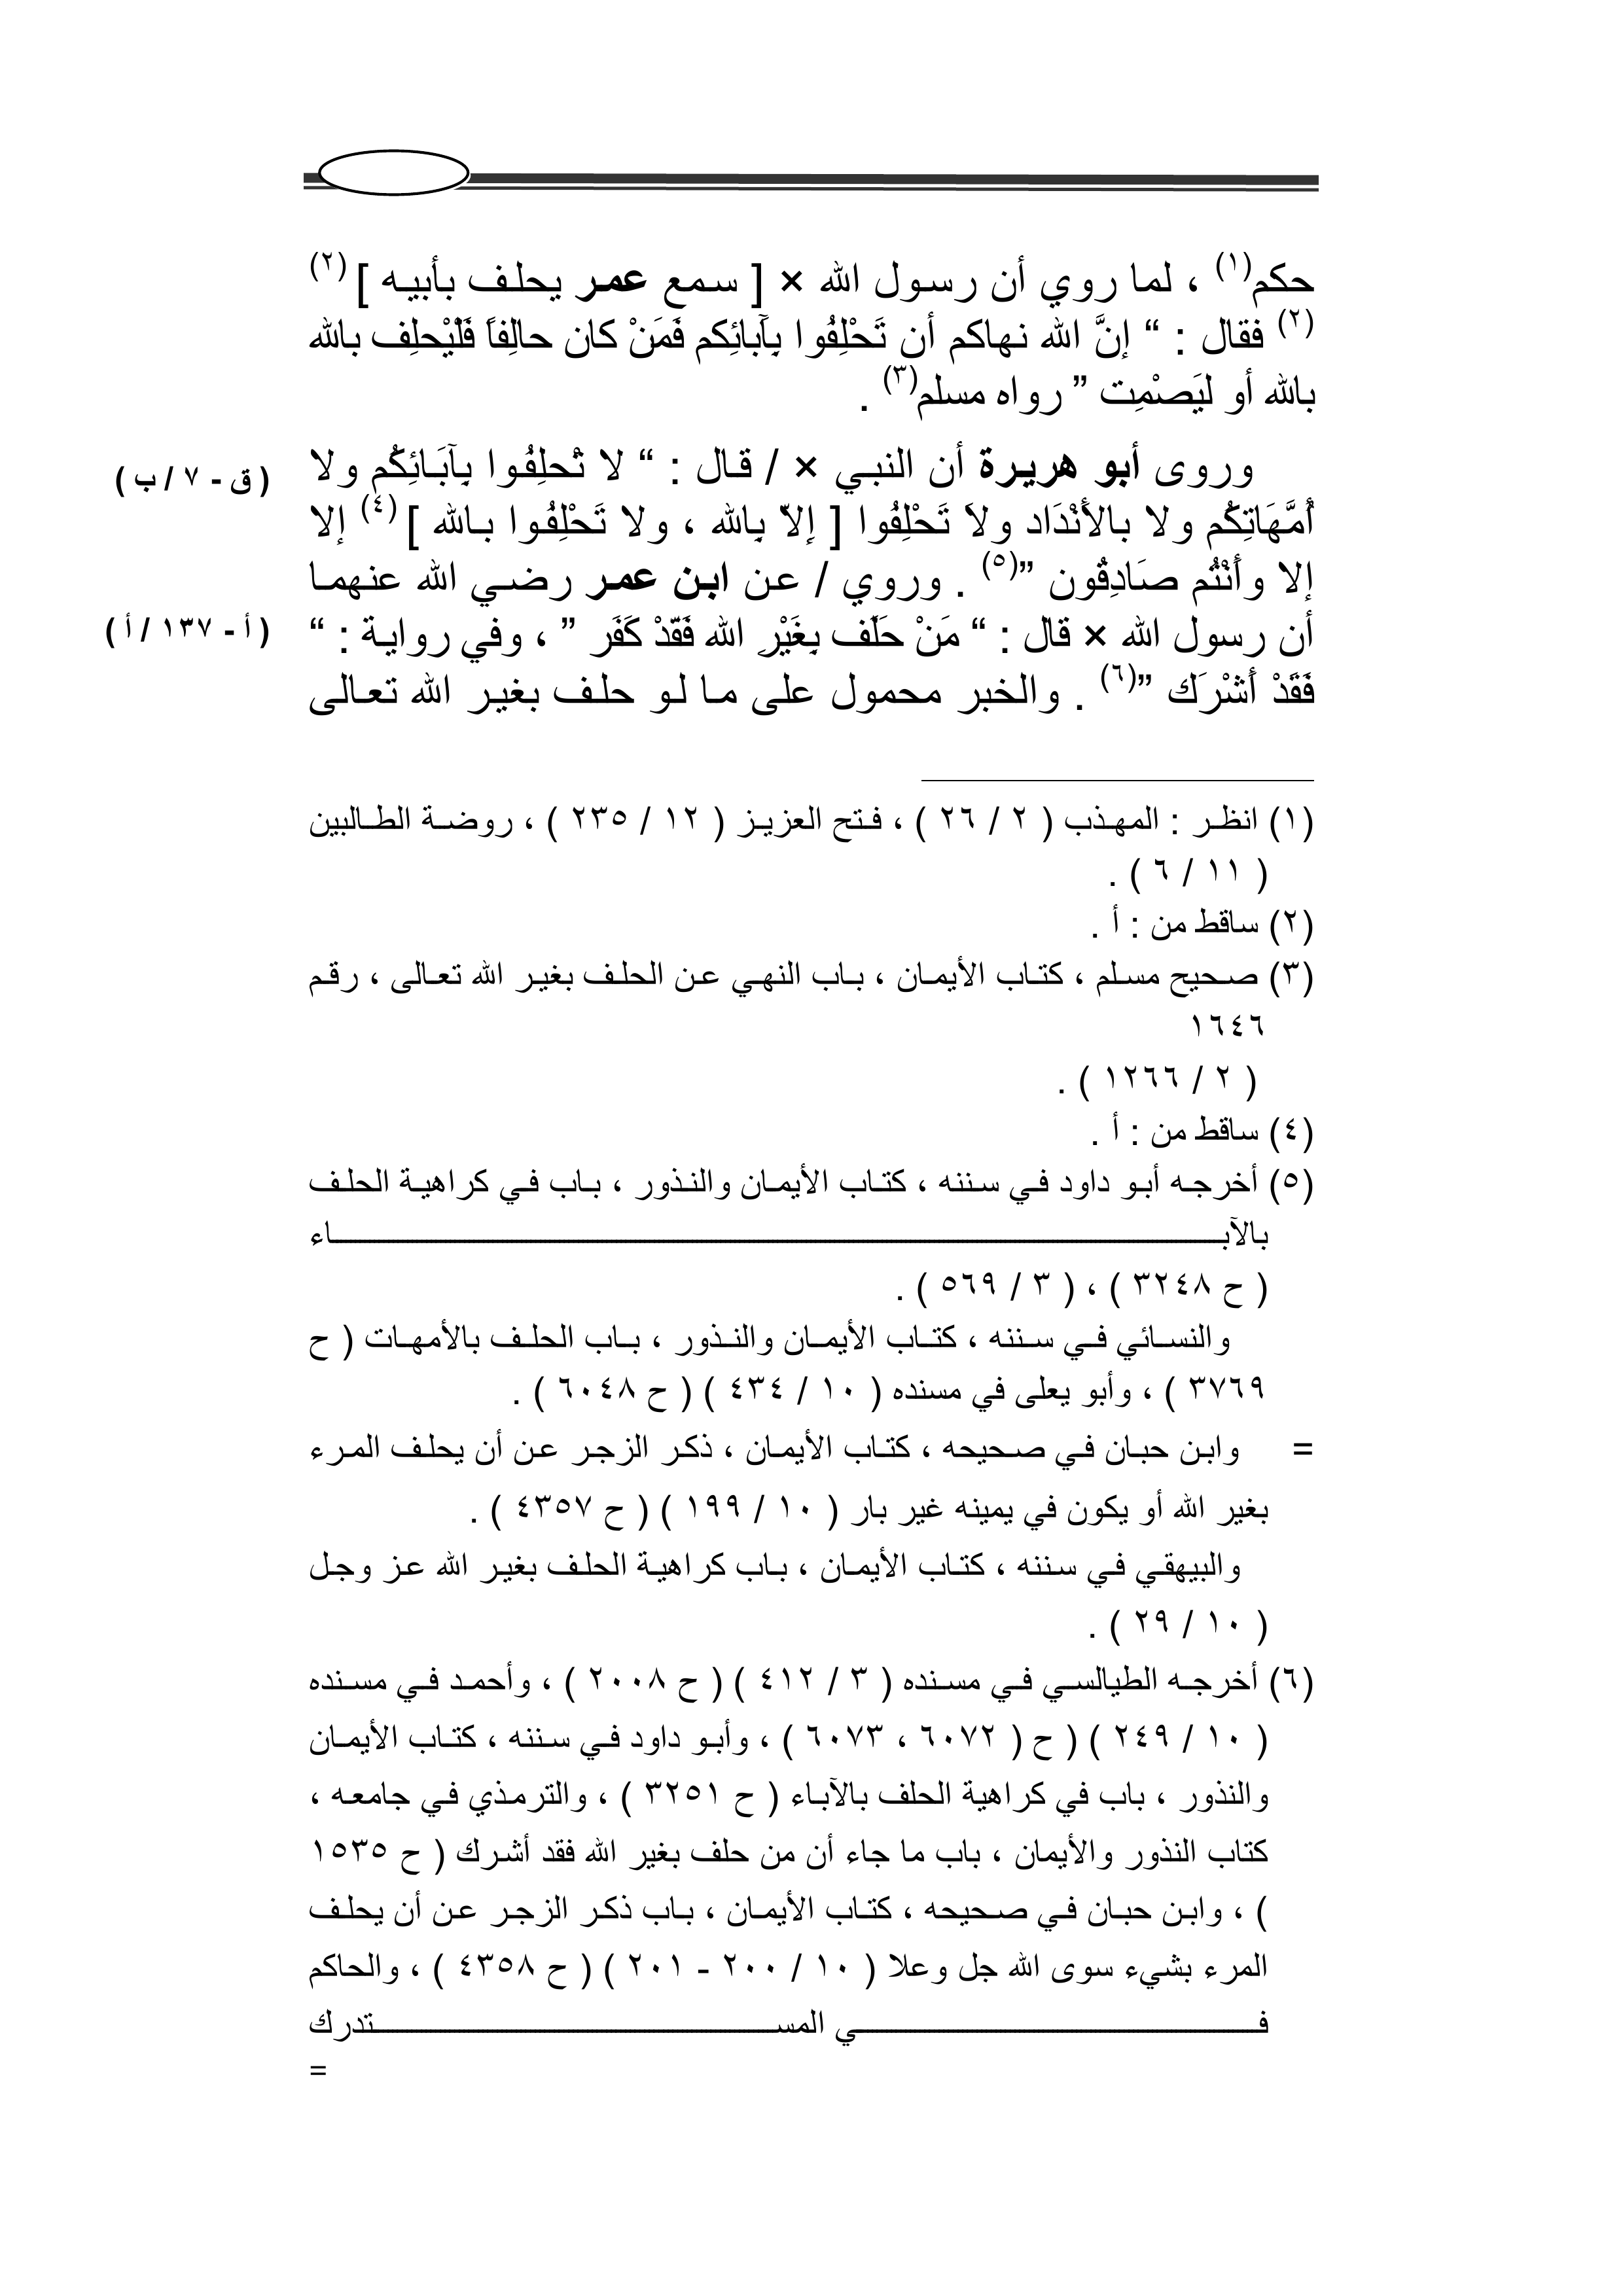 حكم(١) ، لما روي أن رسول الله × [ سمع عمر يحلف بأبيه ] (٢)
(٢) فقال : “ إنَّ الله نهاكم أن تَحْلِفُوا بِآبائِكم فَمَنْ كان حالِفاً فَلْيْحلِف بالله
بالله أو ليَصْمِت ” رواه مسلم(٣) .
وروى أبو هريرة أن النبي × / قال : “ لا تْحلِفُوا بِآبَائِكُم ولا
( ق - ٧ / ب )
أُمَّهَاتِكُم ولا بالأَنْدَاد ولاَ تَحْلِفُوا [ إِلاّ بِالله ، ولا تَحْلِفُوا بالله ] (٤) إلا
إلا وأَنْتُم صَادِقُون ”(٥) . وروي / عن ابن عمر رضي الله عنهما
أن رسول الله × قال : “ مَنْ حَلَف بِغَيْرِ الله فَقَدْ كَفَر ” ، وفي رواية : “
( أ - ١٣٧ / أ )
فَقَدْ أَشْرَك ”(٦) . والخبر محمول على ما لو حلف بغير الله تعالى
(١) انظر : المهذب ( ٢ / ٢٦ ) ، فتح العزيز ( ١٢ / ٢٣٥ ) ، روضة الطالبين
( ١١ / ٦ ) .
(٢) ساقط من : أ .
(٣) صحيح مسلم ، كتاب الأيمان ، باب النهي عن الحلف بغير الله تعالى ، رقم
١٦٤٦
( ٢ / ١٢٦٦ ) .
(٤) ساقط من : أ .
(٥) أخرجه أبو داود في سننه ، كتاب الأيمان والنذور ، باب في كراهية الحلف
بالآباء
( ح ٣٢٤٨ ) ، ( ٣ / ٥٦٩ ) .
والنسائي في سننه ، كتاب الأيمان والنذور ، باب الحلف بالأمهات ( ح
٣٧٦٩ ) ، وأبو يعلى في مسنده ( ١٠ / ٤٣٤ ) ( ح ٦٠٤٨ ) .
= وابن حبان في صحيحه ، كتاب الأيمان ، ذكر الزجر عن أن يحلف المرء
بغير الله أو يكون في يمينه غير بار ( ١٠ / ١٩٩ ) ( ح ٤٣٥٧ ) .
والبيهقي في سننه ، كتاب الأيمان ، باب كراهية الحلف بغير الله عز وجل
( ١٠ / ٢٩ ) .
(٦) أخرجه الطيالسي في مسنده ( ٣ / ٤١٢ ) ( ح ٢٠٠٨ ) ، وأحمد في مسنده
( ١٠ / ٢٤٩ ) ( ح ( ٦٠٧٢ ، ٦٠٧٣ ) ، وأبو داود في سننه ، كتاب الأيمان
والنذور ، باب في كراهية الحلف بالآباء ( ح ٣٢٥١ ) ، والترمذي في جامعه ،
كتاب النذور والأيمان ، باب ما جاء أن من حلف بغير الله فقد أشرك ( ح ١٥٣٥
) ، وابن حبان في صحيحه ، كتاب الأيمان ، باب ذكر الزجر عن أن يحلف
المرء بشيء سوى الله جل وعلا ( ١٠ / ٢٠٠ - ٢٠١ ) ( ح ٤٣٥٨ ) ، والحاكم
في المستدرك
=